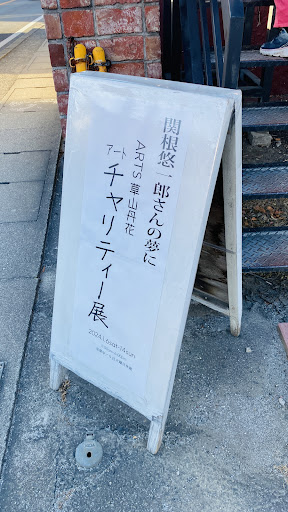 関根悠一郎さんの夢に
ARTS 草山丹花
アート
チャリティー展